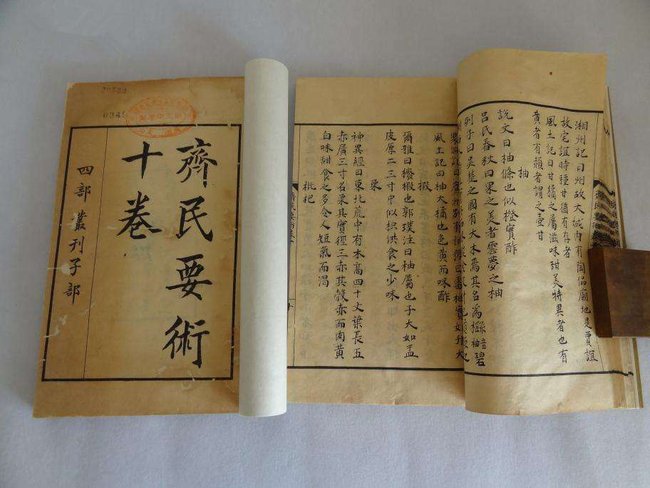 齊民要術
十卷
四部叢刊子部
湘州記曰州故大城內有陶侃廟地是賈誼
故宅誼時種甘猶有存者
風土記曰甘橘之屬滋味甜美特異者也有
黃者有赬者謂之壺甘
柚
說文曰柚條也似橙實酢
呂氏春秋曰果之美者雲夢之柚
列子曰吳楚之國有大木焉其名為櫾碧
風土記曰柚大橘也色黃而味酢
椵
爾雅曰櫠椵也郭璞注曰柚屬也子大如盂
皮厚二三寸中似枳供食之少味
栗
神異經曰東北荒中有木高四十丈葉長五
赤廣三寸名栗其實徑三赤其殼赤而肉黃
白味甜食之多令人短氣而渴
枇杷